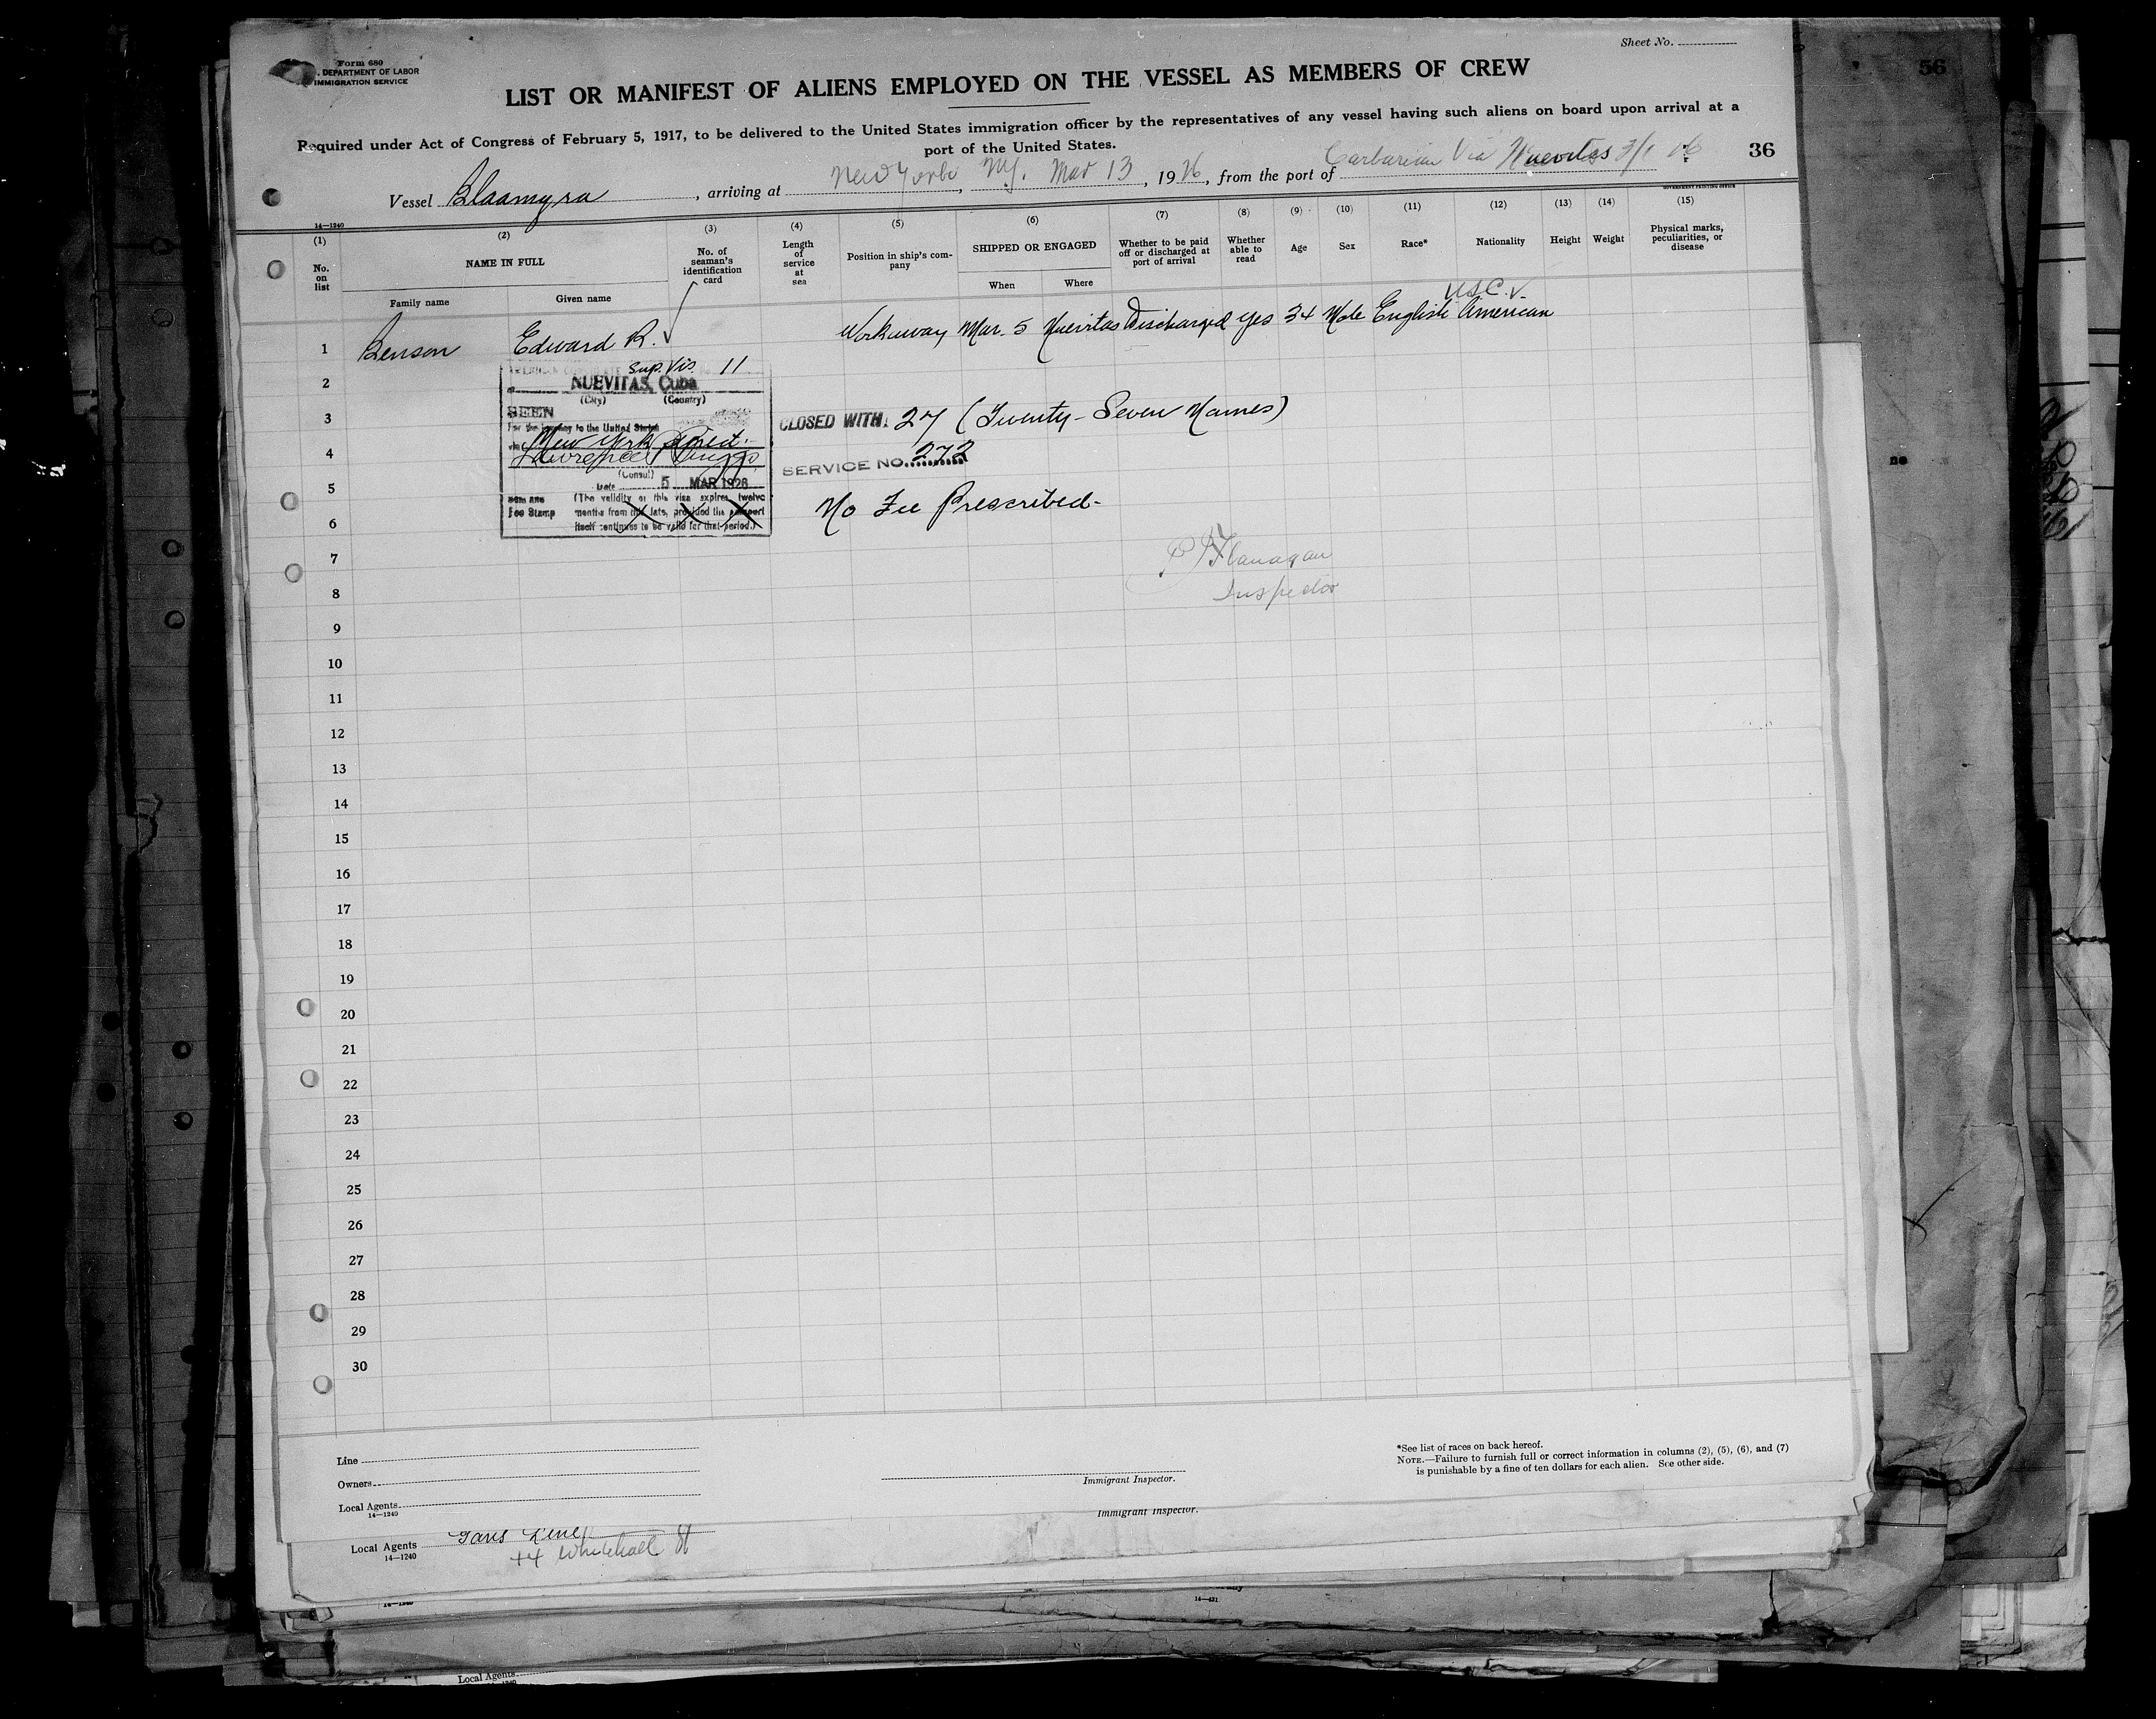 Sheet No.
Form 680
. DEPARTMENT OF LABOR
IMMIGRATION SERVICE
LIST OR MANIFEST OF ALIENS EMPLOYED ON THE VESSEL AS MEMBERS OF CREW
Required under Act of Congress of February 5, 1917, to be delivered to the United States immigration officer by the representatives of any vessel having such aliens on board upon arrival at a
port of the United States.
36
56
Vessel Blaamyra, arriving at New York, NY. Mar 13, 1926, from the port of Via Nuevitas
14—1240
GOVERNMENT PRINTING OFFICE
(1) (2) (3) (4) (5) (6) (7) (8) (9) (10) (11) (12) (13) (14) (15)
No. on list
NAME IN FULL
Family name
Given name
No. of seaman's identification card
Length of service at sea
Position in ship's company
SHIPPED OR ENGAGED
When
Where
Whether to be paid off or discharged at port of arrival
Whether able to read
Age
Sex
Race*
Nationality
Height
Weight
Physical marks, peculiarities, or disease
USC.
1 Benson Edward R. Workaway Mar. 5 Nuevitas Discharged yes 34 Male English American
Sup. Vis. 11
NUEVITAS, Cuba
(City) (Country)
SEEN
For the journey to the United States
via New York Direct.
(Consul)
Date 5 MAR 1926
Fee Stamp
(The validity of this visa expires twelve
months from this date, provided the passport
itself continues to be valid for that period.)
CLOSED WITH: 27 (Twenty-Seven Names)
SERVICE NO. 272
No Fee Prescribed-
Flanagan
Inspector
2
3
4
5
6
7
8
9
10
11
12
13
14
15
16
17
18
19
20
21
22
23
24
25
26
27
28
29
30
Line
Owners
Local Agents
14—1240
Immigrant Inspector.
*See list of races on back hereof.
NOTE.—Failure to furnish full or correct information in columns (2), (5), (6), and (7)
is punishable by a fine of ten dollars for each alien. See other side.
Immigrant Inspector.
Local Agents Gans Line
14—1240
Whitehall St
14—1240
14—421
Local Agents